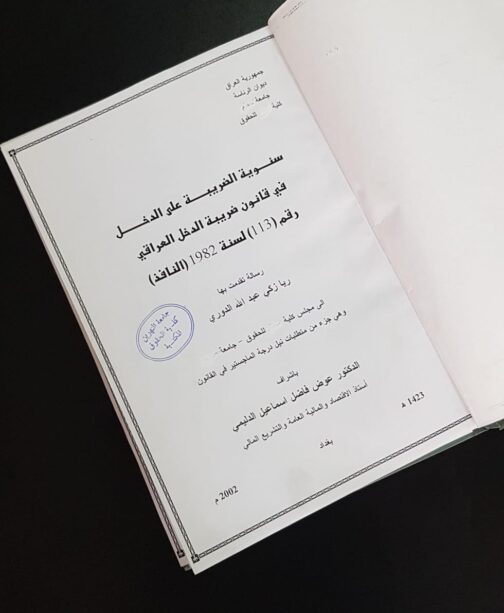 جمهورية العراق
ديوان الرئاسة
جامعة
كلية للحقوق
سنوية الضريبة على الدخل
في قانون ضريبة الدخل العراقي
رقم (113) لسنة 1982 (النافذ)
رسالة تقدمت بها
ربا زكي عبد الله الدوري
الى مجلس كلية للحقوق - جامعة
وهي جزء من متطلبات نيل درجة الماجستير في القانون
جامعة النهرين
كلية الحقوق
المكتبة
باشراف
الدكتور عوض فاضل اسماعيل الدليمي
استاذ الاقتصاد والمالية العامة والتشريع المالي
بغداد
1423 هـ
2002 م